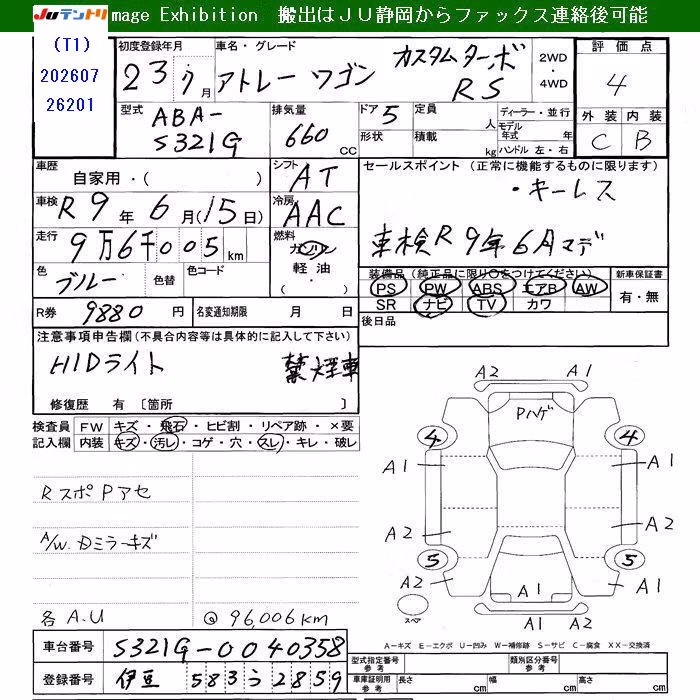 JUテントリ mage Exhibition 搬出はＪＵ静岡からファックス連絡後可能
(T1)
202607
26201
初度登録年月
23 7月
車名・グレード
アトレー ワゴン カスタムターボ RS
2WD
・
4WD
評価点
4
外装 内装
C B
型式
ABA-
S321G
排気量
660 CC
ドア 5
形状
定員 人
積載 kg
ディーラー・並行
モデル
年式 年
ハンドル 左・右
車歴
自家用・( )
シフト
AT
セールスポイント (正常に機能するものに限ります)
・キーレス
車検R9年6月マデ
車検
R9年6月(15日)
冷房
AAC
走行
9万6千005km
燃料
ガソリン
軽油
・
( )
色
ブルー
色替
色コード
装備品 (純正品に限り○をつけてください)
PS PW ABS エアB AW
SR ナビ TV カワ
新車保証書
有・無
後日品
R券 9880円
名変通知期限 月 日
注意事項申告欄(不具合内容等は具体的に記入して下さい)
HIDライト 禁煙車
修復歴 有〔箇所 〕
検査員 FW キズ・飛石・ヒビ割・リペア跡・×要
記入欄 内装 キズ・汚レ・コゲ・穴・スレ・キレ・破レ
RスポPアセ
A/W.Dミラーキズ
各A.U
@96,006km
A2 A1
Pハゲ
4 4
A1 A1
A2 A2
5 5
A2 A1 A1
スペア
A1
A－キズ E－エクボ U－凹み W－補修跡 S－サビ C－腐食 XX－交換済
車台番号 S321G-0040358
登録番号 伊豆 583う2859
型式指定番号
参考
類別区分番号
参考
車庫証明用
参考
長さ cm 幅 cm 高さ cm